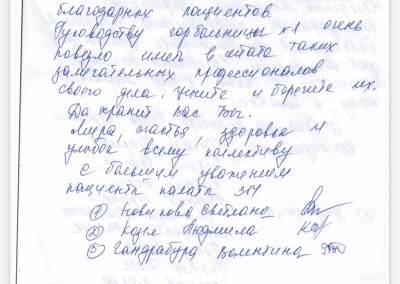 благодарных пациентов.
Руководству горбольницы №1 очень
повезло иметь в штате таких
замечательных профессионалов
своего дела. Цените и берегите их.
Да хранит Вас Бог.
Мира, счастья, здоровья и
улыбок всему коллективу
с большим уважением
пациенты палата 314
① Новикова Светлана
② Козел Людмила
③ Гандрабура Валентина